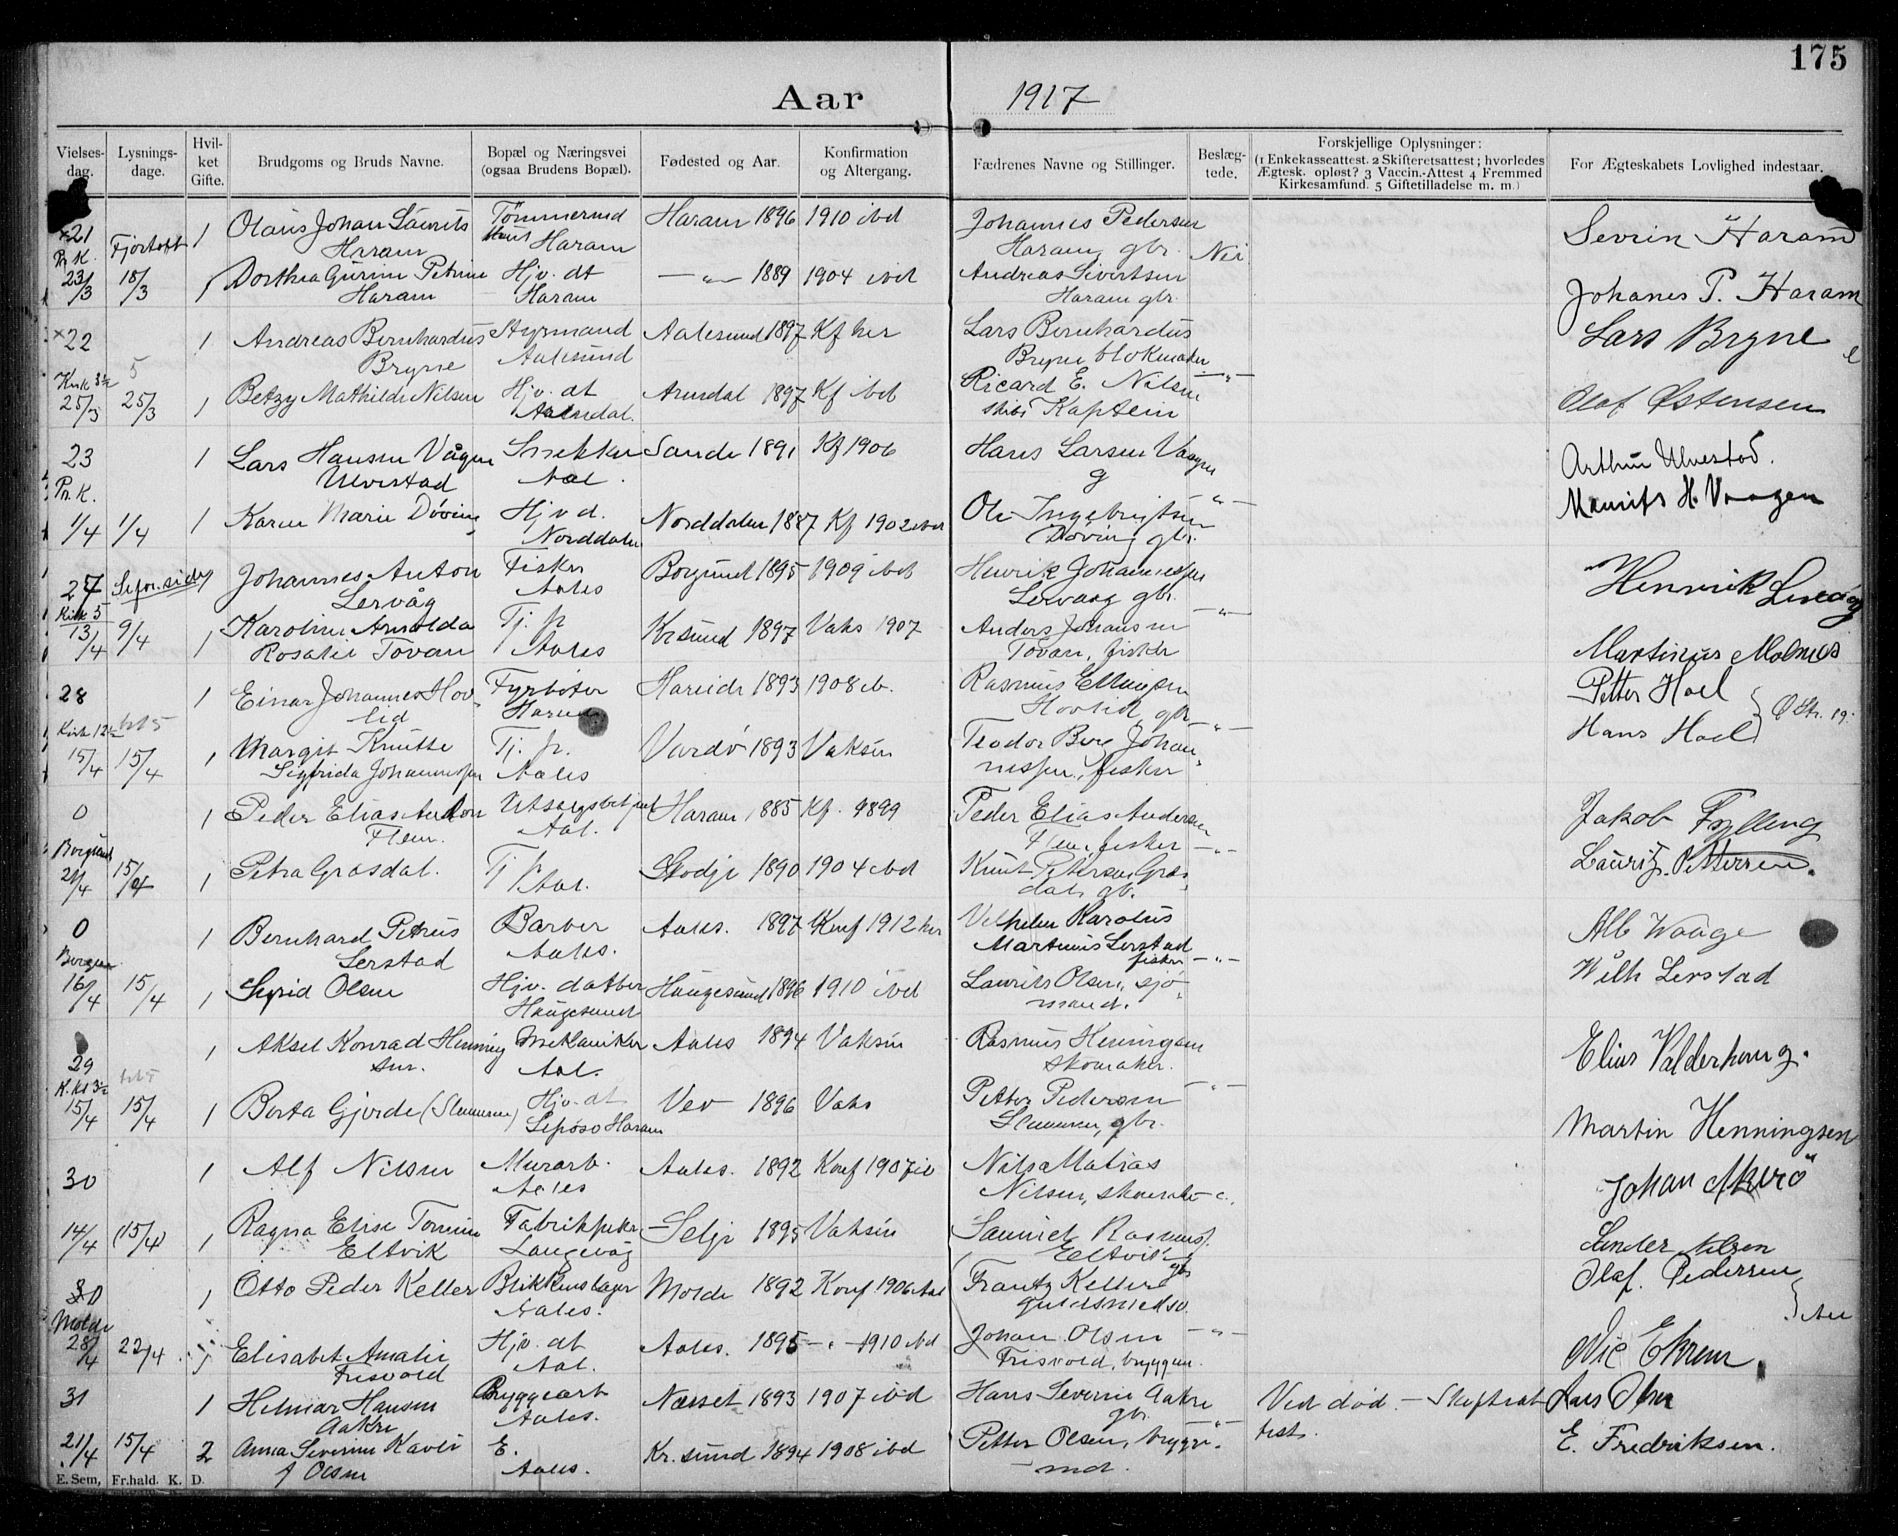 175
Aar 1917
Vielses-dag. Lysnings-dage. Hvil-ket Gifte. Brudgoms og Bruds Navne. Bopæl og Næringsvei (ogsaa Brudens Bopæl). Fødested og Aar. Konfirmation og Altergang. Fædrenes Navne og Stillinger. Beslæg-tede. Forskjellige Oplysninger: (1 Enkekasseattest. 2 Skifteretsattest; hvorledes Ægtesk. opløst? 3 Vaccin.-Attest 4 Fremmed Kirkesamfund. 5 Giftetilladelse m. m.) For Ægteskabets Lovlighed indestaar.
21 Fjortoft 1 Olaus Johan Laurits Haram Haram 1896 1910 ibd Johannes Pedersen Haram gbr. Nei Sevrin Haram
Pr. K.
23/3 18/3 1 Dorthea Gurine Petrine Haram Hjv. dt Haram — " — 1889 1904 ibd Andreas Sivertsen Haram gbr. Johanes P. Haram
22 1 Andreas Bernhardus Bryne Styrmand Aalesund Aalesund 1897 Kf her Lars Bernhardus Bryne blokmaker — " — Lars Bryne
25/3 25/3 1 Betzy Mathilde Nilsen Hjv. dt Arendal 1897 Kf ibd Ricard E. Nilsen skibs Kaptein Olaf Østensen
23 1 Lars Hansen Vågnes Ulvestad Snekker Aal. Sande 1891 Kf 1906 Hans Larsen Vaagnes g Arthur Ulvestad.
Pr. K.
1/4 1/4 1 Karen Marie Døving Hjv d. Norddalen Norddalen 1887 Kf 1902 ibd Ole Ingebrigtsen Døving gbr. — " — Maurits H. Vaagen
27 1 Johannes Anton Lervåg Fisker Aales Borgund 1895 1909 ibd Henrik Johannessen Lervaag gbr. — " — Henrik Lervåg
Kirk 5
13/4 9/4 1 Karoline Arnolda Rosalie Tovan Tj. p Aales Krsund 1897 Vaks 1907 Anders Johansen Tovan, fisker Martinus Molnes
28 1 Einar Johannes Hovlid Fyrbøter Hareid Hareide 1893 1908 ib. Rasmus Ellingsen Hovlid gbr — " — Petter Hoel
15/4 15/4 1 Margit Knutte Sigfrida Johannessen Tj. p. Aales Vardø 1893 Vaksin Teodor Berg Johannessen, fisker Hans Hoel
0 1 Peder Elias Anton Flem. Aal. Haram 1885 Kf. 1899 Peder Elias Andersen Flem, fisker — " — Jakob Fylling
Borgund
21/4 15/4 1 Petra Grøsdal. Tj p Aal. Skodje 1890 1904 ibd Knut Petersen Grøsdal, gb. Lauritz Pettersen.
0 1 Bernhard Petrus Lerstad Barber Aales. Aales. 1897 Konf 1912 her Vilhelm Karolus Martinus Lerstad fisker — " — Alb Waage
Bergen
16/4 15/4 1 Sigrid Olsen Hjv. datter Haugesund Haugesund 1896 1910 ibd Laurits Olsen, sjømand. Wilh Lerstad
29 1 Aksel Konrad Henningsen Mekaniker Aal. Aales 1894 Vaksin Rasmus Henningsen skomaker. — " — Elias Valderhaug.
15/4 15/4 1 Berta Gjerde (Slemmen) Hjv. dt Lepsø Haram Vev 1896 Vaks Petter Pedersen Slemmen, gbr. Martin Henningsen
30 1 Alf Nilsen Murarb. Aales Aales. 1892 Konf 1907 ib Nils Matias Nilsen, Johan Akerø
14/4 (15/4) 1 Ragna Elise Tomine Eltvik Langevåg Selje 1895 Vaksin Samuel Rasmuss. Eltvik gb Sander Nilsen
30 1 Otto Peder Keller Blikkenslager Aales. Molde 1892 Konf 1906 Frantz Keller guldsmedsv. Olaf. Pedersen
Molde
28/4 22/4 1 Elisabet Amalie Frisvold Hjv. dt Aal. Aales. 1895 — " — 1910 ibd Johan Olsen Frisvold, bryggem. — " — Nic Ekrem.
31 1 Helmar Hansen Aakre Bryggearb Aales. Nesset 1893 1907 ibd Hans Severin Aakre gbr. — " — Ved død. — Skifteat Lars Olsen
21/4 15/4 2 Anna Severine Kavli f Olsen E. Aales. Kr. sund 1894 1908 ibd Petter Olsen, bryggemd. test. E. Fredriksen.
E. Sem, Fr.hald. K. D.